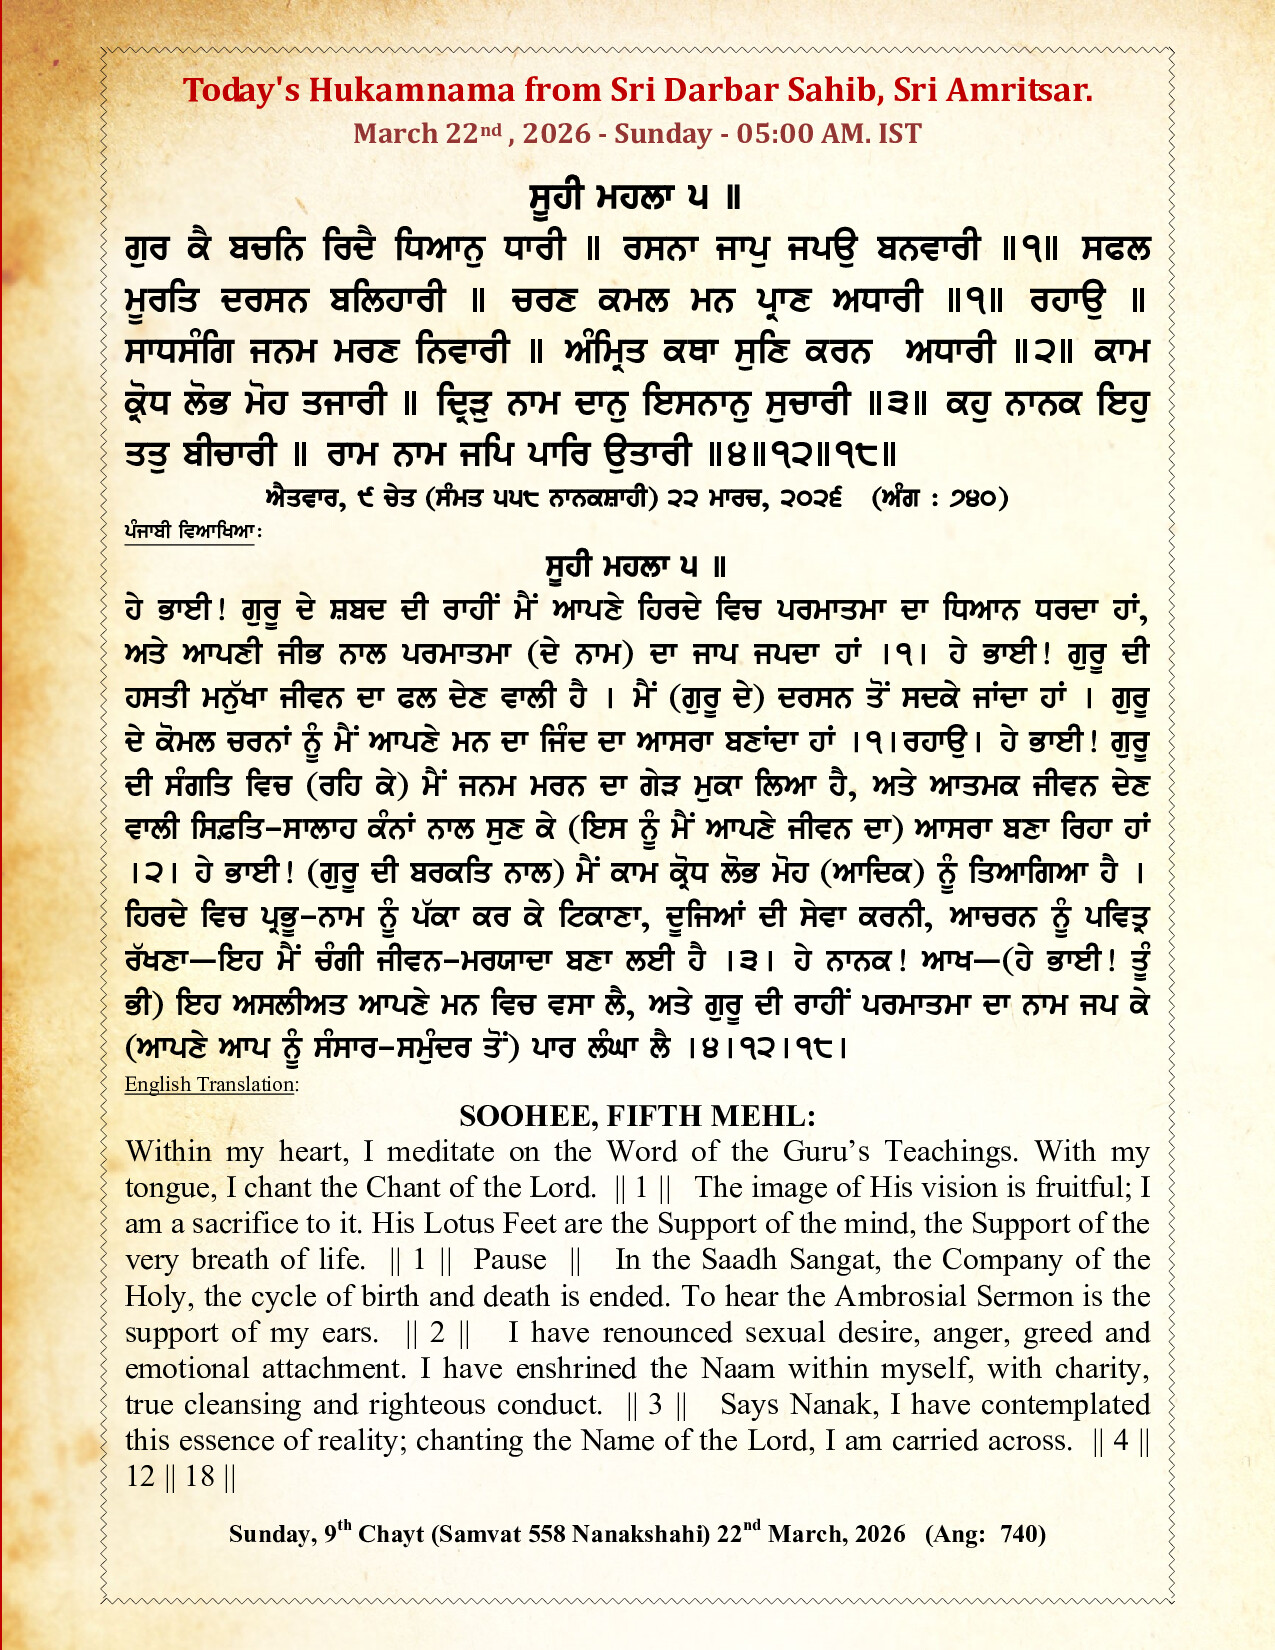 Today's Hukamnama from Sri Darbar Sahib, Sri Amritsar.
March 22nd , 2026 - Sunday - 05:00 AM. IST
ਸੂਹੀ ਮਹਲਾ ੫ ॥
ਗੁਰ ਕੈ ਬਚਨਿ ਰਿਦੈ ਧਿਆਨੁ ਧਾਰੀ ॥ ਰਸਨਾ ਜਾਪੁ ਜਪਉ ਬਨਵਾਰੀ ॥੧॥ ਸਫਲ
ਮੂਰਤਿ ਦਰਸਨ ਬਲਿਹਾਰੀ ॥ ਚਰਣ ਕਮਲ ਮਨ ਪ੍ਰਾਣ ਅਧਾਰੀ ॥੧॥ ਰਹਾਉ ॥
ਸਾਧਸੰਗਿ ਜਨਮ ਮਰਣ ਨਿਵਾਰੀ ॥ ਅੰਮ੍ਰਿਤ ਕਥਾ ਸੁਣਿ ਕਰਨ ਅਧਾਰੀ ॥੨॥ ਕਾਮ
ਕ੍ਰੋਧ ਲੋਭ ਮੋਹ ਤਜਾਰੀ ॥ ਦ੍ਰਿੜੁ ਨਾਮ ਦਾਨੁ ਇਸਨਾਨੁ ਸੁਚਾਰੀ ॥੩॥ ਕਹੁ ਨਾਨਕ ਇਹੁ
ਤਤੁ ਬੀਚਾਰੀ ॥ ਰਾਮ ਨਾਮ ਜਪਿ ਪਾਰਿ ਉਤਾਰੀ ॥੪॥੧੨॥੧੮॥
ਐਤਵਾਰ, ੯ ਚੇਤ (ਸੰਮਤ ੫੫੮ ਨਾਨਕਸ਼ਾਹੀ) ੨੨ ਮਾਰਚ, ੨੦੨੬ (ਅੰਗ : ੭੪੦)
ਪੰਜਾਬੀ ਵਿਆਖਿਆ:
ਸੂਹੀ ਮਹਲਾ ੫ ॥
ਹੇ ਭਾਈ! ਗੁਰੂ ਦੇ ਸ਼ਬਦ ਦੀ ਰਾਹੀਂ ਮੈਂ ਆਪਣੇ ਹਿਰਦੇ ਵਿਚ ਪਰਮਾਤਮਾ ਦਾ ਧਿਆਨ ਧਰਦਾ ਹਾਂ,
ਅਤੇ ਆਪਣੀ ਜੀਭ ਨਾਲ ਪਰਮਾਤਮਾ (ਦੇ ਨਾਮ) ਦਾ ਜਾਪ ਜਪਦਾ ਹਾਂ ।੧। ਹੇ ਭਾਈ! ਗੁਰੂ ਦੀ
ਹਸਤੀ ਮਨੁੱਖਾ ਜੀਵਨ ਦਾ ਫਲ ਦੇਣ ਵਾਲੀ ਹੈ । ਮੈਂ (ਗੁਰੂ ਦੇ) ਦਰਸਨ ਤੋਂ ਸਦਕੇ ਜਾਂਦਾ ਹਾਂ । ਗੁਰੂ
ਦੇ ਕੋਮਲ ਚਰਨਾਂ ਨੂੰ ਮੈਂ ਆਪਣੇ ਮਨ ਦਾ ਜਿੰਦ ਦਾ ਆਸਰਾ ਬਣਾਂਦਾ ਹਾਂ ।੧।ਰਹਾਉ। ਹੇ ਭਾਈ! ਗੁਰੂ
ਦੀ ਸੰਗਤਿ ਵਿਚ (ਰਹਿ ਕੇ) ਮੈਂ ਜਨਮ ਮਰਨ ਦਾ ਗੇੜ ਮੁਕਾ ਲਿਆ ਹੈ, ਅਤੇ ਆਤਮਕ ਜੀਵਨ ਦੇਣ
ਵਾਲੀ ਸਿਫ਼ਤਿ-ਸਾਲਾਹ ਕੰਨਾਂ ਨਾਲ ਸੁਣ ਕੇ (ਇਸ ਨੂੰ ਮੈਂ ਆਪਣੇ ਜੀਵਨ ਦਾ) ਆਸਰਾ ਬਣਾ ਰਿਹਾ ਹਾਂ
।੨। ਹੇ ਭਾਈ! (ਗੁਰੂ ਦੀ ਬਰਕਤਿ ਨਾਲ) ਮੈਂ ਕਾਮ ਕ੍ਰੋਧ ਲੋਭ ਮੋਹ (ਆਦਿਕ) ਨੂੰ ਤਿਆਗਿਆ ਹੈ ।
ਹਿਰਦੇ ਵਿਚ ਪ੍ਰਭੂ-ਨਾਮ ਨੂੰ ਪੱਕਾ ਕਰ ਕੇ ਟਿਕਾਣਾ, ਦੂਜਿਆਂ ਦੀ ਸੇਵਾ ਕਰਨੀ, ਆਚਰਨ ਨੂੰ ਪਵਿਤ੍ਰ
ਰੱਖਣਾ—ਇਹ ਮੈਂ ਚੰਗੀ ਜੀਵਨ-ਮਰਯਾਦਾ ਬਣਾ ਲਈ ਹੈ ।੩। ਹੇ ਨਾਨਕ! ਆਖ—(ਹੇ ਭਾਈ! ਤੂੰ
ਭੀ) ਇਹ ਅਸਲੀਅਤ ਆਪਣੇ ਮਨ ਵਿਚ ਵਸਾ ਲੈ, ਅਤੇ ਗੁਰੂ ਦੀ ਰਾਹੀਂ ਪਰਮਾਤਮਾ ਦਾ ਨਾਮ ਜਪ ਕੇ
(ਆਪਣੇ ਆਪ ਨੂੰ ਸੰਸਾਰ-ਸਮੁੰਦਰ ਤੋਂ) ਪਾਰ ਲੰਘਾ ਲੈ ।੪।੧੨।੧੮।
English Translation:
SOOHEE, FIFTH MEHL:
Within my heart, I meditate on the Word of the Guru’s Teachings. With my
tongue, I chant the Chant of the Lord. || 1 || The image of His vision is fruitful; I
am a sacrifice to it. His Lotus Feet are the Support of the mind, the Support of the
very breath of life. || 1 || Pause || In the Saadh Sangat, the Company of the
Holy, the cycle of birth and death is ended. To hear the Ambrosial Sermon is the
support of my ears. || 2 || I have renounced sexual desire, anger, greed and
emotional attachment. I have enshrined the Naam within myself, with charity,
true cleansing and righteous conduct. || 3 || Says Nanak, I have contemplated
this essence of reality; chanting the Name of the Lord, I am carried across. || 4 ||
12 || 18 ||
Sunday, 9th Chayt (Samvat 558 Nanakshahi) 22nd March, 2026 (Ang: 740)